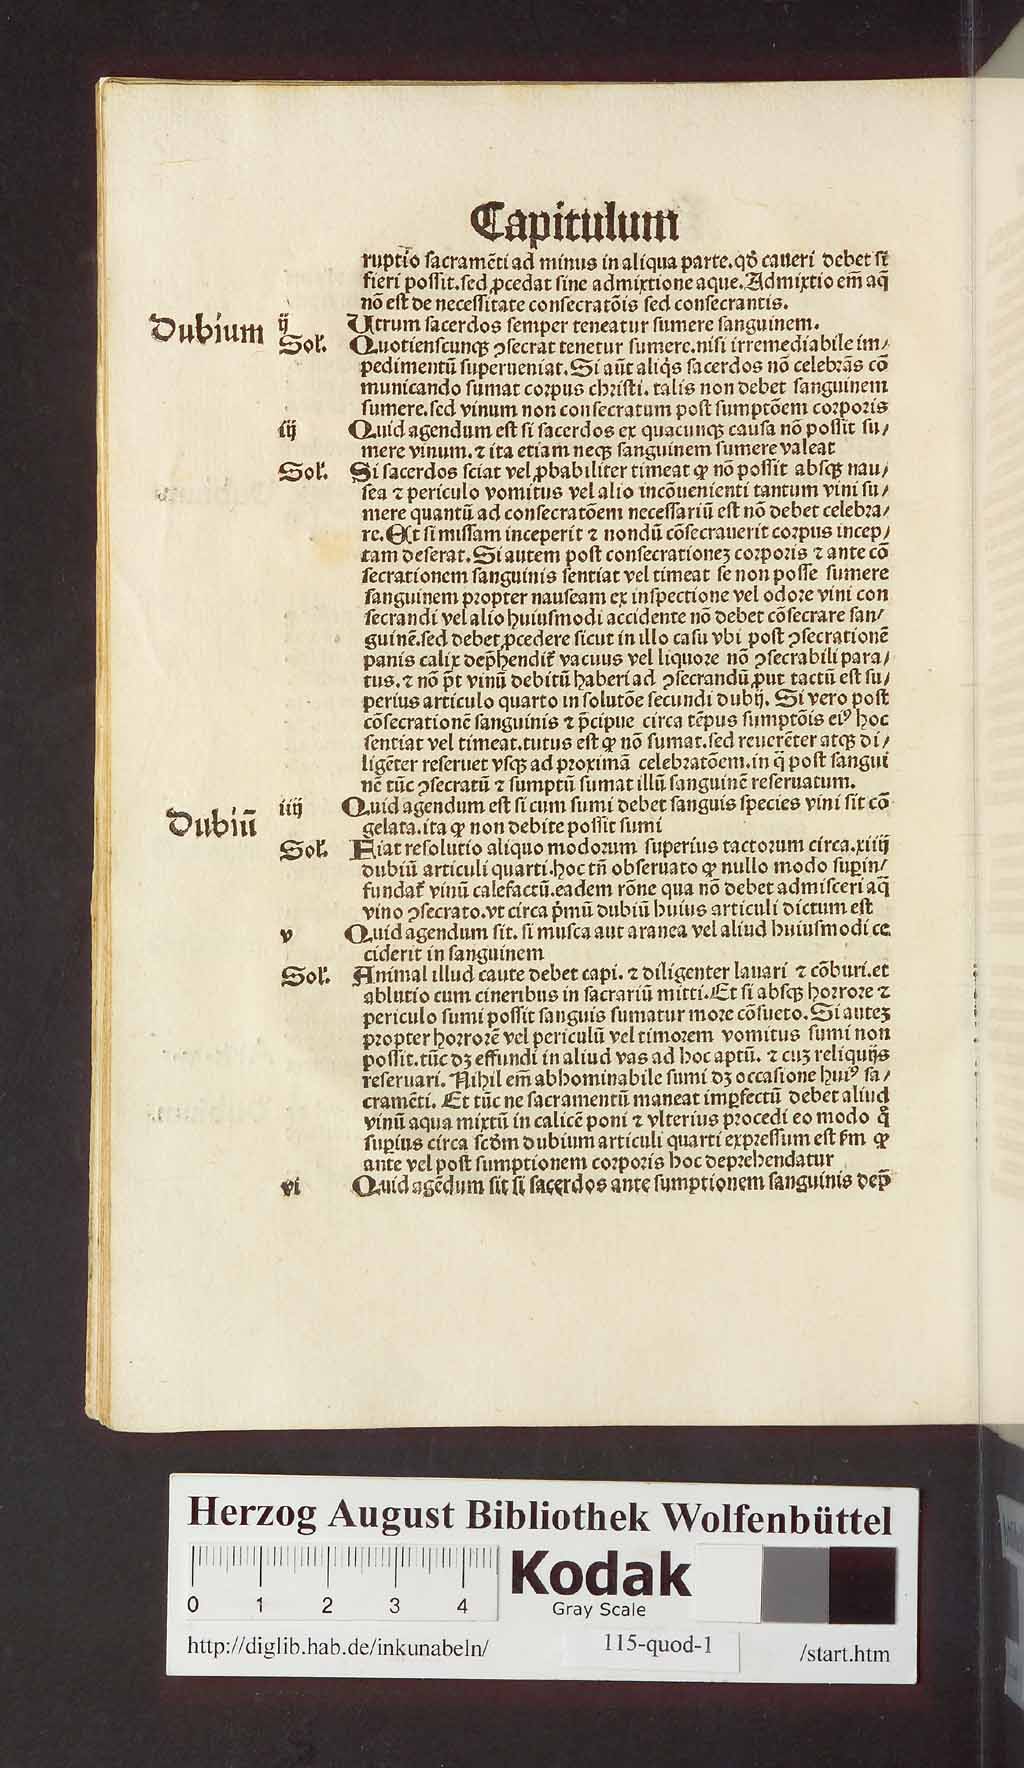 Capitulum
ruptio sacramēti ad minus in aliqua parte. qd̄ caueri debet si
fieri possit. sed ꝓcedat sine admixtione aque. Admixtio em̄ aq̄
nō est de necessitate consecratōis sed consecrantis.
Dubium ij Utrum sacerdos semper teneatur sumere sanguinem.
Sol. Quotienscunqꝫ ꝯsecrat tenetur sumere. nisi irremediabile im/
pedimentū superueniat. Si aūt aliq̇s sacerdos nō celebrās cō
municando sumat corpus christi. talis non debet sanguinem
sumere. sed vinum non consecratum post sumptōem corporis
iij Quid agendum est si sacerdos ex quacunqꝫ causa nō possit su/
mere vinum. ⁊ ita etiam neqꝫ sanguinem sumere valeat
Sol. Si sacerdos sciat vel ꝓbabiliter timeat ꝙ nō possit absqꝫ nau/
sea ⁊ periculo vomitus vel alio incōuenienti tantum vini su/
mere quantū ad consecratōem necessariū est nō debet celebra/
re. Et si missam inceperit ⁊ nondū cōsecrauerit corpus incep/
tam deserat. Si autem post consecrationeꝫ corporis ⁊ ante cō
secrationem sanguinis sentiat vel timeat se non posse sumere
sanguinem propter nauseam ex inspectione vel odore vini con
secrandi vel alio huiusmodi accidente nō debet cōsecrare san/
guinē. sed debet ꝓcedere sicut in illo casu vbi post ꝯsecrationē
panis calix dep̄hendit᷑ vacuus vel liquore nō ꝯsecrabili para/
tus. ⁊ nō p̄t vinū debitū haberi ad ꝯsecrandū ꝓut tactū est su/
perius articulo quarto in solutōe secundi dubij. Si vero post
cōsecrationē sanguinis ⁊ p̄cipue circa tēpus sumptōis eiꝰ hoc
sentiat vel timeat. tutus est ꝙ nō sumat. sed reuerēter atqꝫ di/
ligēter reseruet vsqꝫ ad proximā celebratōem. in q̄ post sangui
nē tūc ꝯsecratū ⁊ sumptū sumat illū sanguinē reseruatum.
Dubiū iiij Quid agendum est si cum sumi debet sanguis species vini sit cō
gelata. ita ꝙ non debite possit sumi
Sol. Fiat resolutio aliquo modorum superius tactorum circa. xiiij
dubiū articuli quarti. hoc tn̄ obseruato ꝙ nullo modo suꝑin/
fundat᷑ vinū calefactū. eadem rōne qua nō debet admisceri aq̄
vino ꝯsecrato. vt circa p̄mū dubiū huius articuli dictum est
v Quid agendum sit. si musca aut aranea vel aliud huiusmodi ce
ciderit in sanguinem
Sol. Animal illud caute debet capi. ⁊ diligenter lauari ⁊ cōburi. et
ablutio cum cineribus in sacrariū mitti. Et si absqꝫ horrore ⁊
periculo sumi possit sanguis sumatur more cōsueto. Si auteꝫ
propter horrorē vel periculū vel timorem vomitus sumi non
possit. tūc dꝫ effundi in aliud vas ad hoc aptū. ⁊ cuꝫ reliquijs
reseruari. Nihil em̄ abhominabile sumi dꝫ occasione huiꝰ sa/
cramēti. Et tūc ne sacramentū maneat imꝑfectū debet aliud
vinū aqua mixtū in calicē poni ⁊ vlterius procedi eo modo q̊
suꝑius circa scd̄m dubium articuli quarti expressum est fm̄ ꝙ
ante vel post sumptionem corporis hoc deprehendatur
vi Quid agēdum sit si sacerdos ante sumptionem sanguinis dep̄
Herzog August Bibliothek Wolfenbüttel
Kodak
Gray Scale
0 1 2 3 4
http://diglib.hab.de/inkunabeln/ 115-quod-1 /start.htm